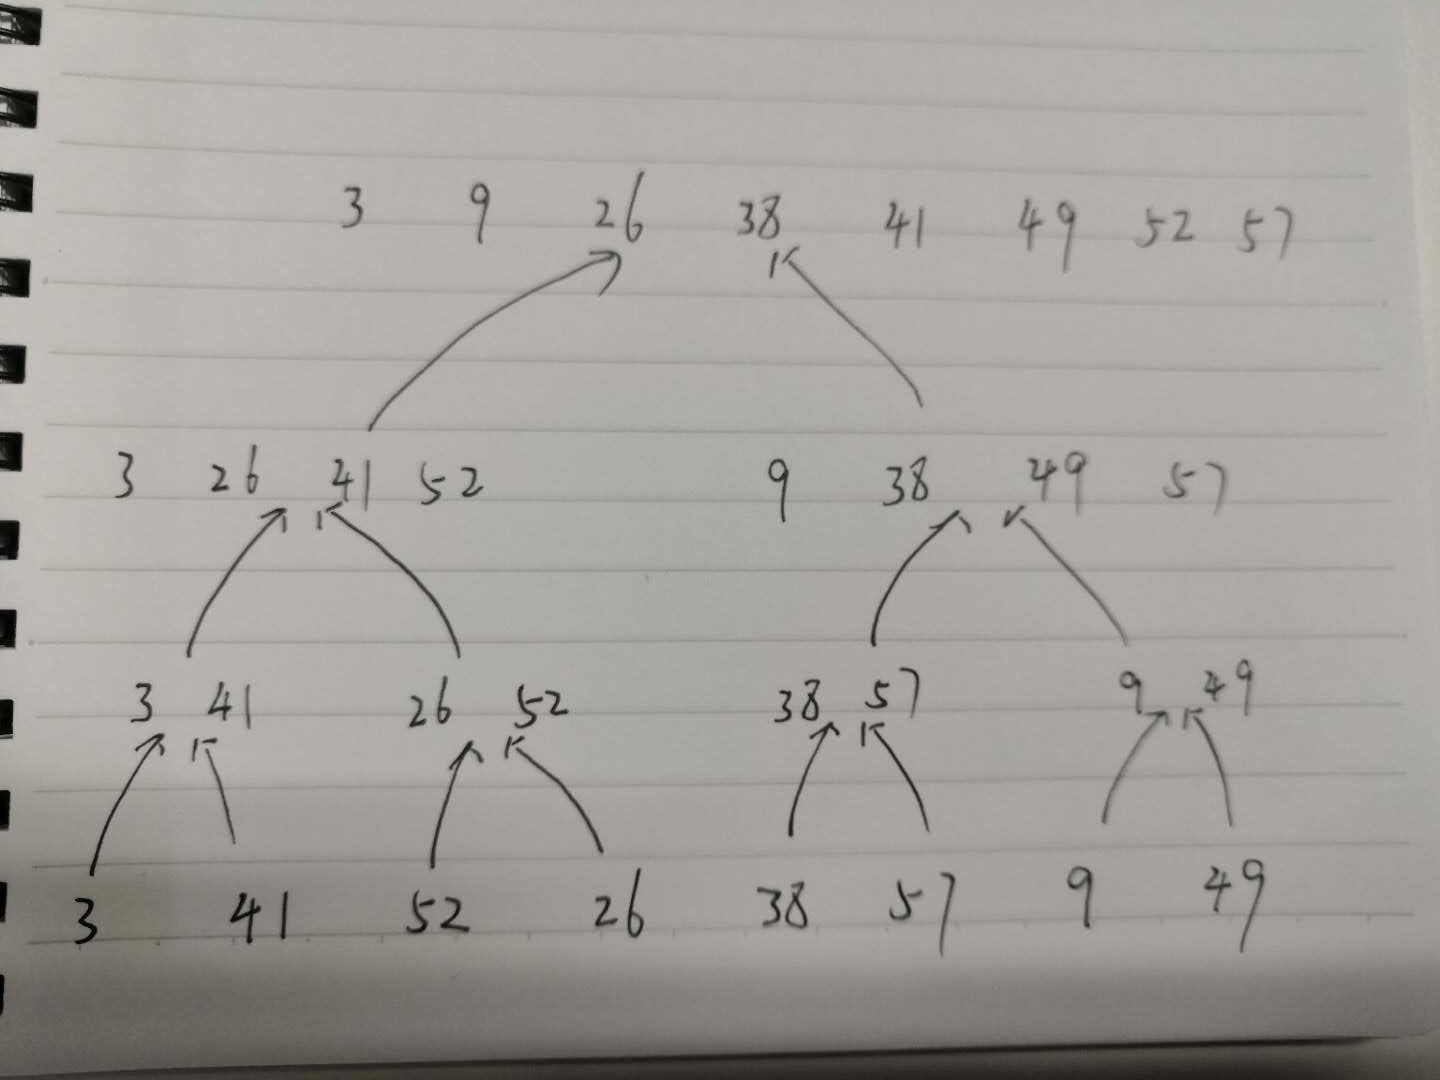 3 9 26 38 41 49 52 57
3 26 41 52 9 38 49 57
3 41 26 52 38 57 9 49
3 41 52 26 38 57 9 49